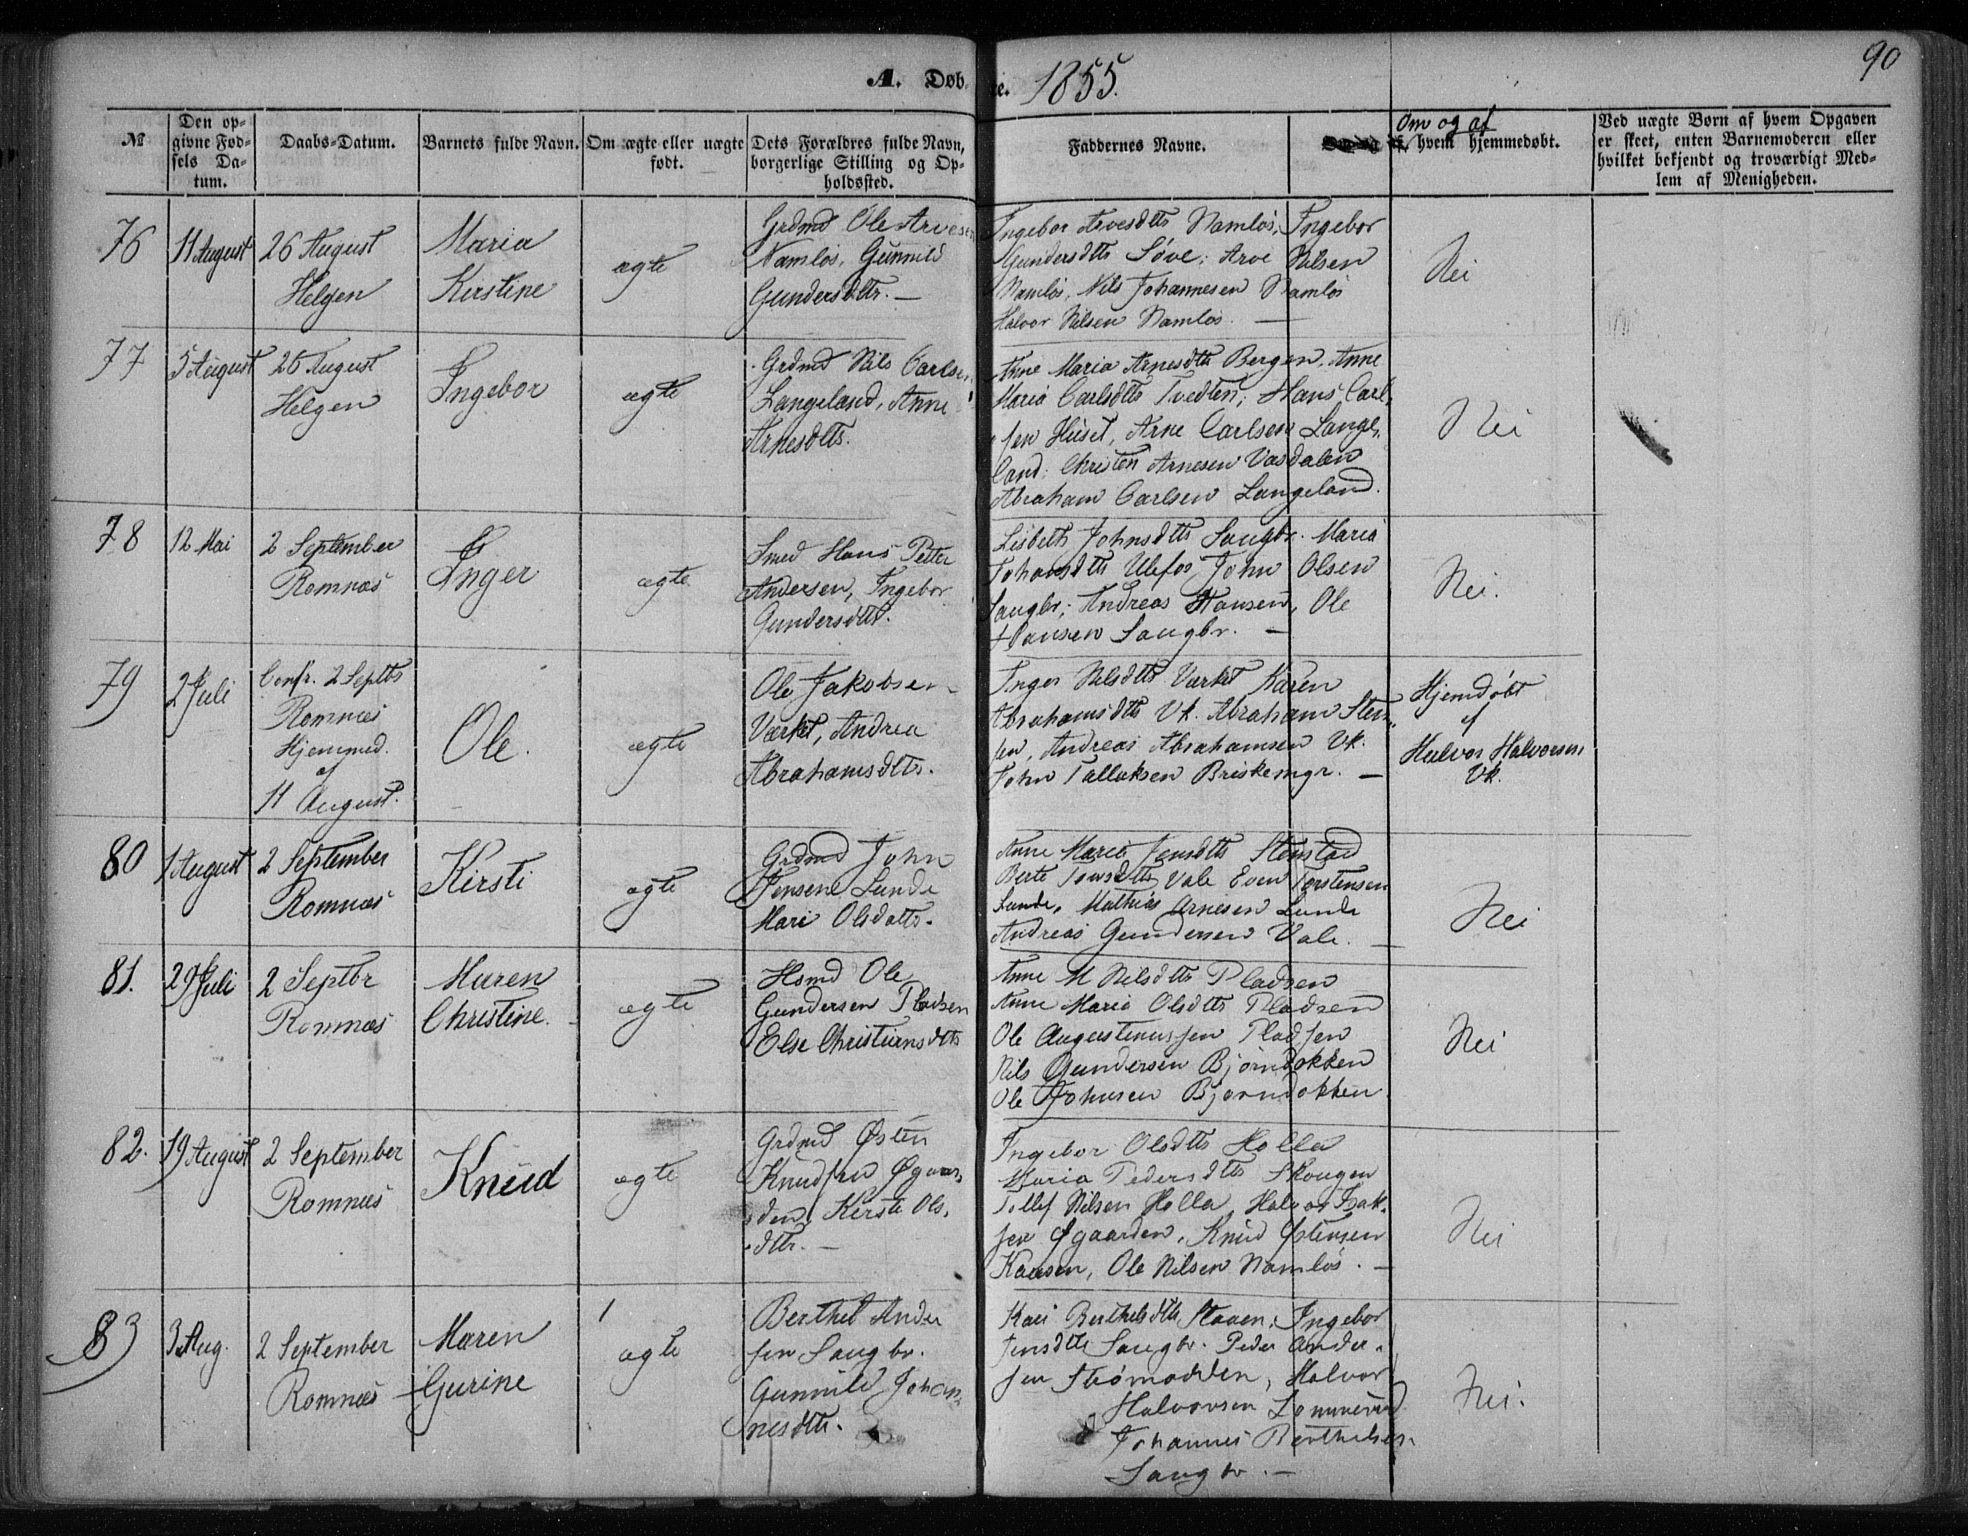 A. Døbte. 1855.
90
№
Den op-
givne Fød-
sels Da-
tum.
Daabs-Datum.
Barnets fulde Navn.
Om ægte eller uægte
født.
Dets Forældres fulde Navn,
borgerlige Stilling og Op-
holdssted.
Faddernes Navne.
Om og af
hvem hjemmedøbt.
Ved uægte Børn af hvem Opgaven
er skeet, enten Barnemoderen eller
hvilket bekjendt og troværdigt Med-
lem af Menigheden.
76
11 August
26 August
Helgen
Maria
Kirstine
ægte
Grdmd Ole Arvesen
Namløs, Gunnild
Gundersdtr. —
Ingebor Arvesdtr Namløs, Ingebor
Gundersdtr Søve; Arve Nilsen
Namløs, Nils Johannesen Namløs
Halvor Nilsen Namløs. —
Nei
77
5 August
26 August
Helgen
Ingebor
ægte
Grdmd Nils Carlsen
Langeland, Anne
Arnesdtr.
Anne Maria Arnesdtr Bergan, Anne
Maria Carlsdtr Tvedten; Hans Carl-
sen Huset, Arne Carlsen Lange-
land; Christen Arnesen Vasdalen
Abraham Carlsen Langeland.
Nei
78
12 Mai
2 September
Romnæs
Inger
ægte
Smed Hans Petter
Andersen, Ingebor
Gundersdtr.
Lisbeth Johnsdtr Saugbr. Maria
Johansdtr Ulefos John Olsen
Saugbr; Andreas Hansen, Ole
Hansen Saugbr. —
Nei.
79
2 Juli
Confr. 2 Septbr
Romnæs
Hjemmed.
af
11 August.
Ole.
ægte
Ole Jakobsen
Værket, Andrea
Abrahamsdtr.
Inger Nilsdtr Værket Karen
Abrahamsdtr Vk. Abraham Sten-
sen, Andreas Abrahamsen Vk.
John Tallaksen Briskemyr. —
Hjemdøbt
af
Halvor Halvorsen
Vk.
80
1 August
2 September
Romnæs
Kirsti
ægte
Grdmd John
Jensen Lunde
Mari Olsdatr.
Anne Maria Jensdtr Stenstad
Berte Tovsdtr Vale Even Torstensen
Lunde, Mathias Arnesen Lunde
Andreas Gundersen Vale. —
Nei
81.
29 Juli
2 Septbr
Romnæs
Maren
Christine.
ægte
Hsmd Ole
Gundersen Pladsen
Else Christiansdtr
Anne M Nilsdtr Pladsen
Anne Maria Olsdtr Pladsen
Ole Augustinussen Pladsen
Nils Gundersen Bjørndokken
Ole Johnsen Bjørndokken.
Nei
82.
19 August
2 September
Romnæs
Knud
ægte
Grdmd Østen
Knudsen Øgaar-
den, Kirsti Ols-
dtr. —
Ingebor Olsdtr Holla
Maria Pedersdtr Skougen
Tollef Nilsen Holla, Halvor Isak-
sen Øgaarden, Knud Østensen
Kaasen, Ole Nilsen Namløs. —
Nei
83
3 Aug.
2 September
Romnæs
Maren
Gurine
ægte
Berthel Ander
sen Saugbr.
Gunnild Johan-
nesdtr.
Kari Berthelsdtr Staven, Ingebor
Jensdtr Saugbr. Peder Ander-
sen Strømodden, Halvor
Halvorsen
Johannes Berthelsen
Saugbr. —
Nei.